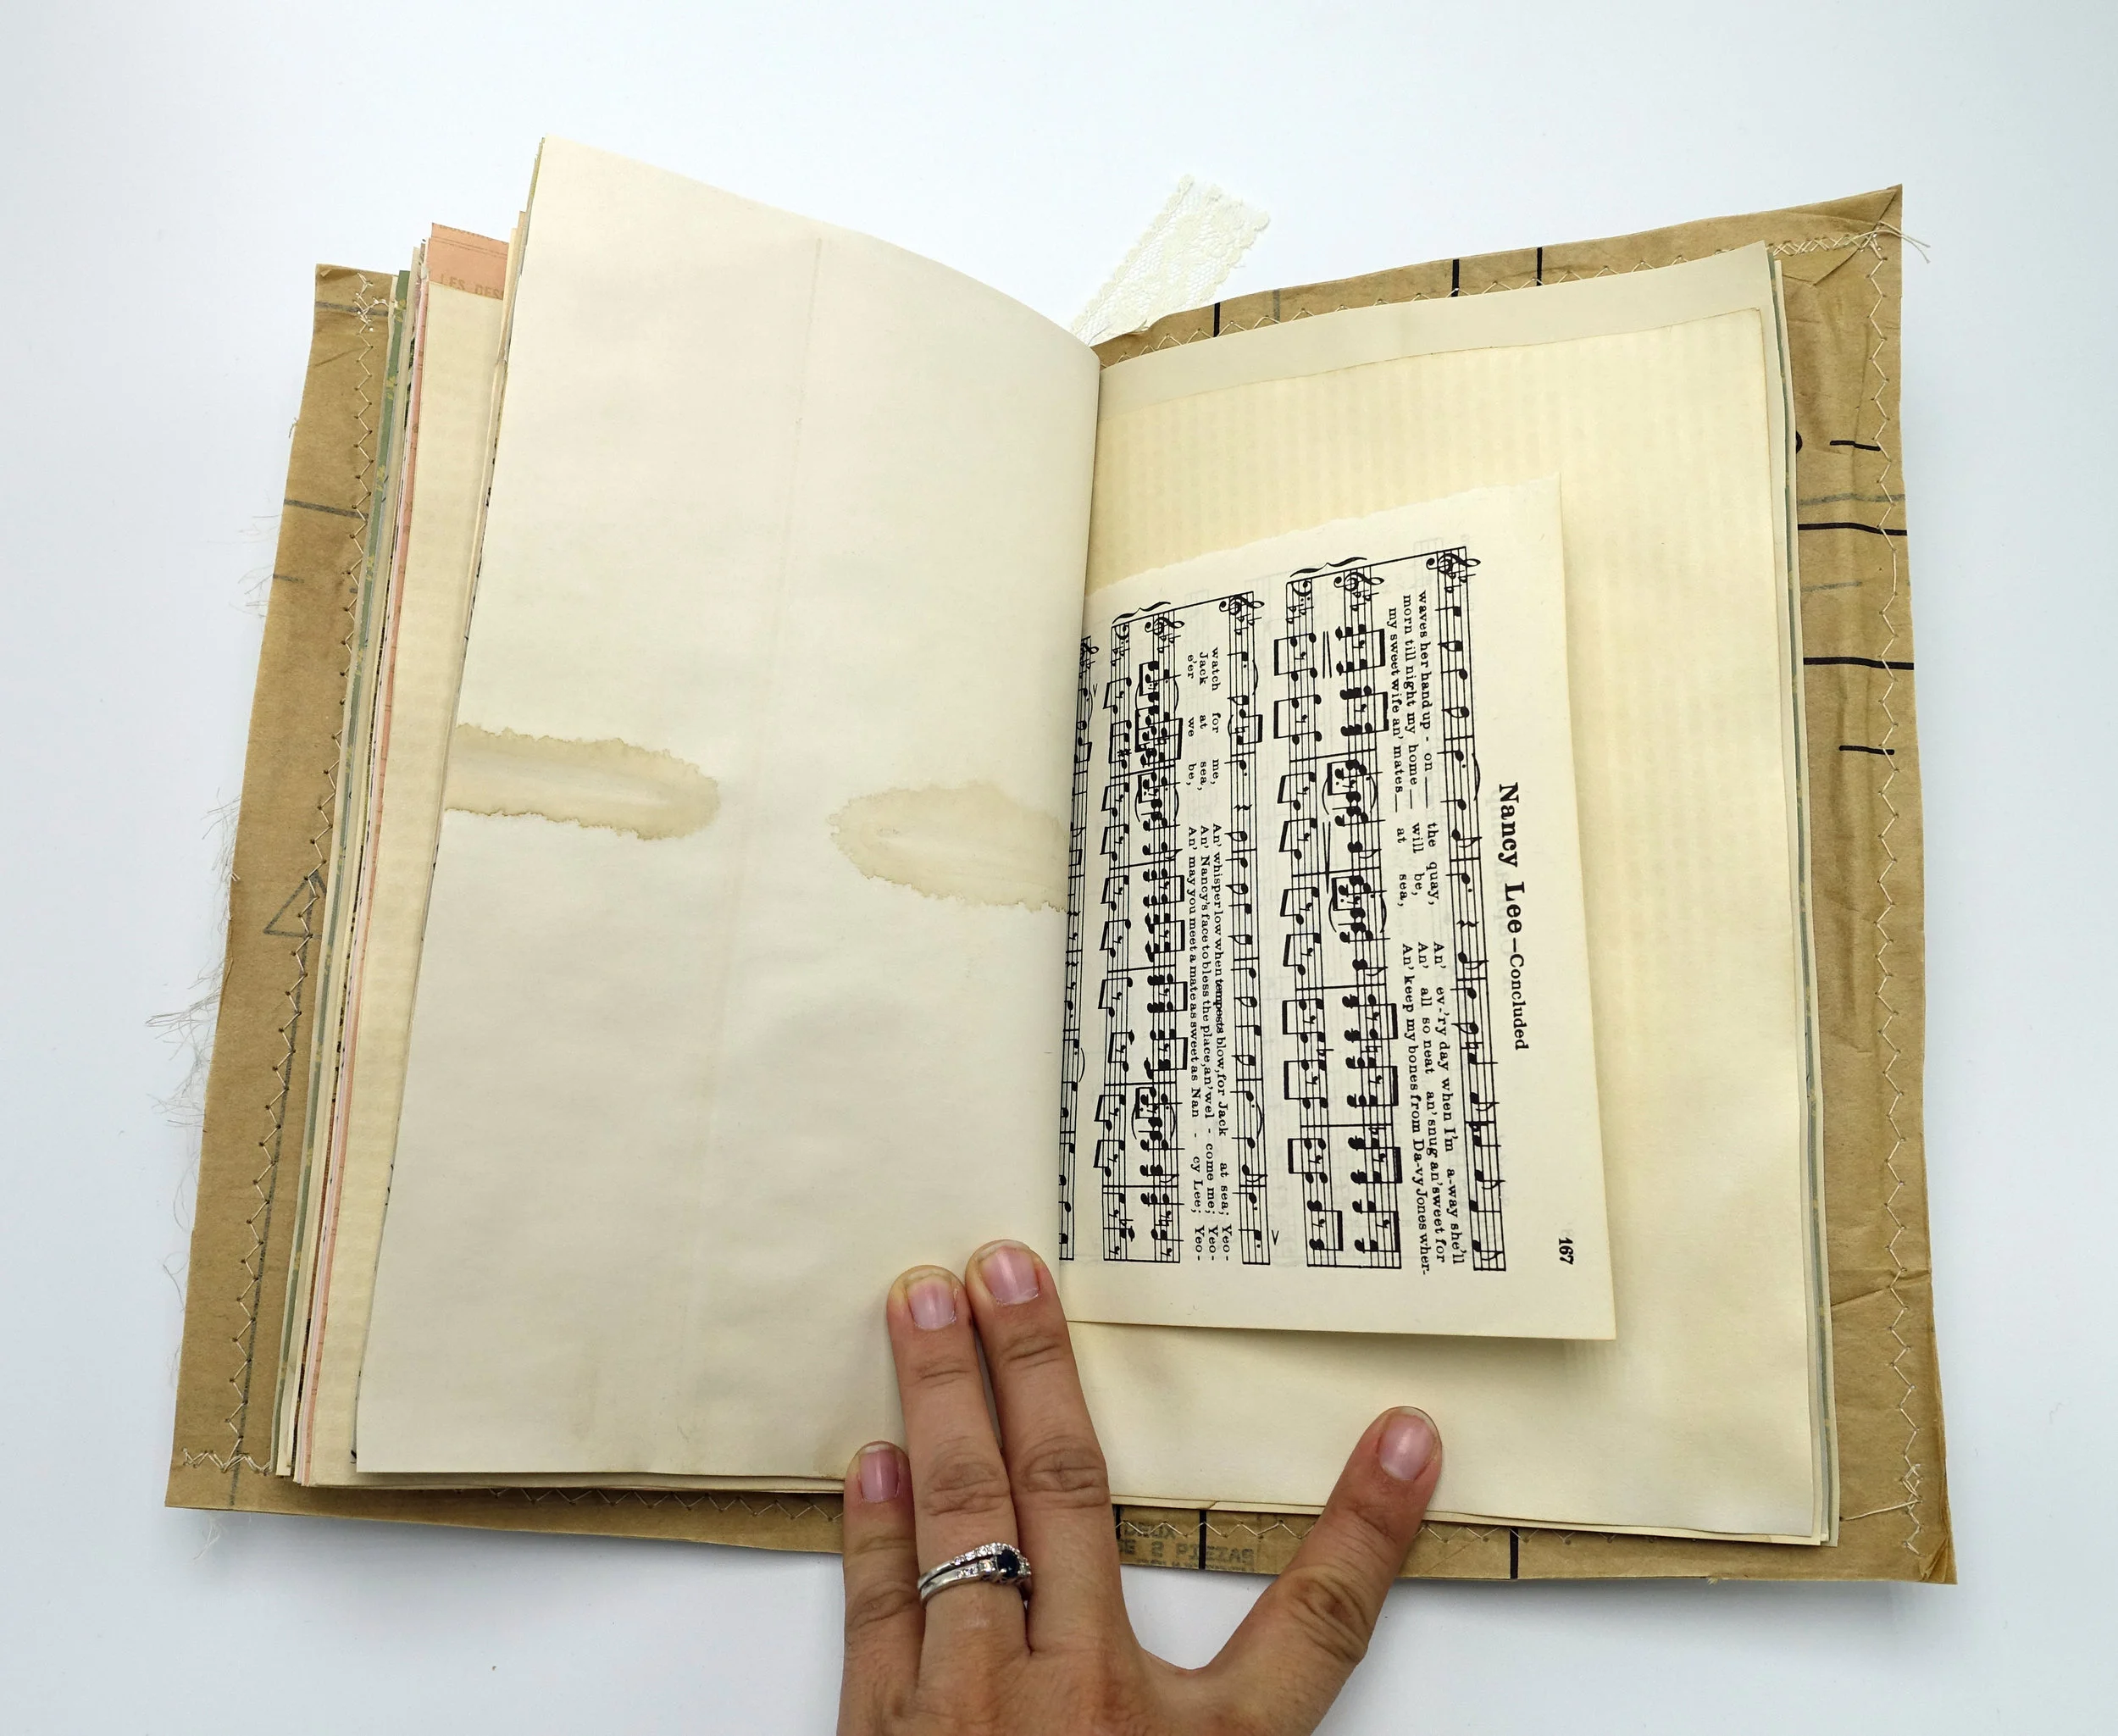 167
Nancy Lee—Concluded
waves her hand up - on the quay, An' ev-'ry day when I'm a-way she'll
morn till night my home will be, An' all so neat an' snug an' sweet for
my sweet wife an' mates at sea, An' keep my bones from Da-vy Jones wher-
watch for me, An' whisper low when tempests blow, for Jack at sea; Yeo-
Jack at sea, An' Nancy's face to bless the place, an' wel - come me; Yeo-
e'er we be, An' may you meet a mate as sweet as Nan - cy Lee; Yeo-
LES DES
DEUX
2 PIEZAS